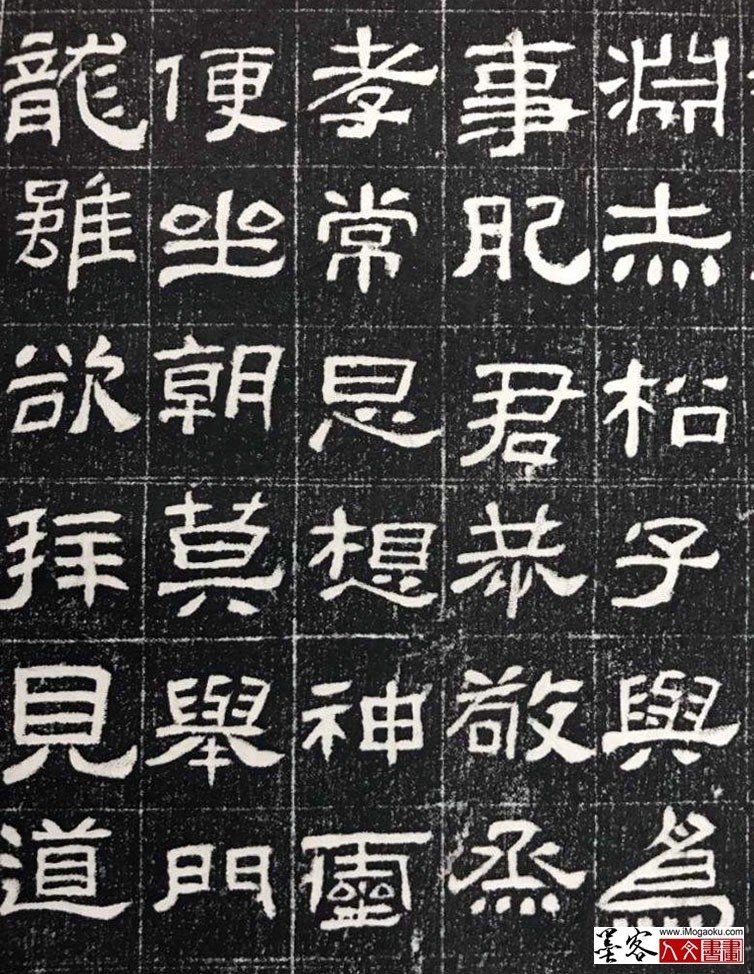 淵赤松子與為
事肥君恭敬烝
孝常思想神靈
便坐朝莫舉門
龍雖欲拜見道
www.iMogaoku.com
墨客 人文書畫